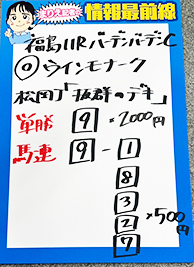 とりえま記者
情報最前線
福島11Rバーデンバーデン.C
◎ウインモナーク
松岡J「抜群のデキ」
単勝 9 ×2000円
馬連 9 - 1
8
3
2 ×500円
7